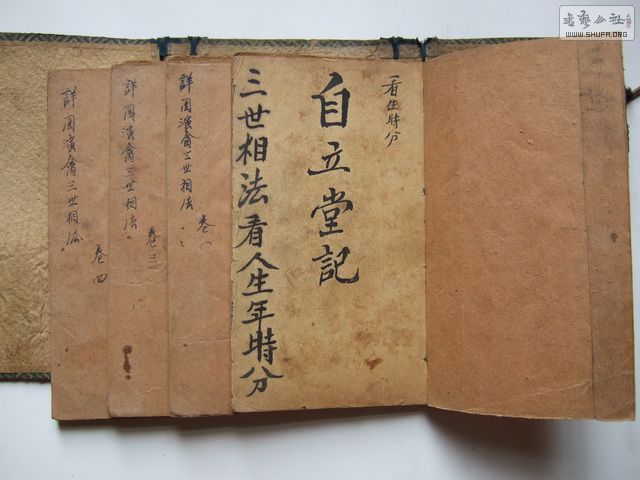 看生時分
自立堂記
三世相法看人生年時分
詳圖演禽三世相法
詳圖演禽三世相法
卷三
詳圖演禽三世相法
卷四
書藝公社
WWW.SHUFA.ORG